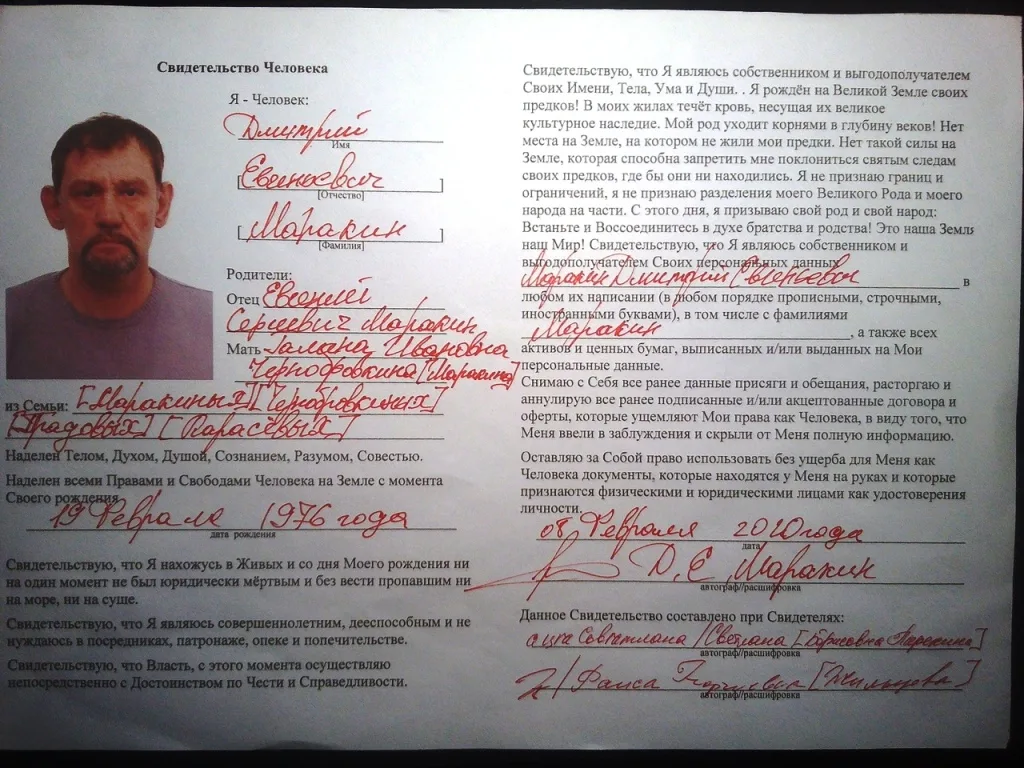 Свидетельство Человека
Я - Человек:
Дмитрий
Имя
[Евгеньевич]
[Отчество]
[Маракин]
[Фамилия]
Родители:
Отец Евгений
Сергеевич Маракин
Мать Галина Ивановна
Чернобровкина [Маракина]
из Семьи: [Маракиных] [Чернобровкиных]
[Градовых] [Карасёвых]
Наделен Телом, Духом, Душой, Сознанием, Разумом, Совестью.
Наделен всеми Правами и Свободами Человека на Земле с момента
Своего рождения
19 Февраля 1976 года
дата рождения
Свидетельствую, что Я нахожусь в Живых и со дня Моего рождения ни
на один момент не был юридически мёртвым и без вести пропавшим ни
на море, ни на суше.
Свидетельствую, что Я являюсь совершеннолетним, дееспособным и не
нуждаюсь в посредниках, патронаже, опеке и попечительстве.
Свидетельствую, что Власть, с этого момента осуществляю
непосредственно с Достоинством по Чести и Справедливости.
Свидетельствую, что Я являюсь собственником и выгодополучателем
Своих Имени, Тела, Ума и Души. . Я рождён на Великой Земле своих
предков! В моих жилах течёт кровь, несущая их великое
культурное наследие. Мой род уходит корнями в глубину веков! Нет
места на Земле, на котором не жили мои предки. Нет такой силы на
Земле, которая способна запретить мне поклониться святым следам
своих предков, где бы они ни находились. Я не признаю границ и
ограничений, я не признаю разделения моего Великого Рода и моего
народа на части. С этого дня, я призываю свой род и свой народ:
Встаньте и Воссоединитесь в духе братства и родства! Это наша Земля
наш Мир! Свидетельствую, что Я являюсь собственником и
выгодополучателем Своих персональных данных
Маракин Дмитрий Евгеньевич в
любом их написании (в любом порядке прописными, строчными,
иностранными буквами), в том числе с фамилиями
Маракин, а также всех
активов и ценных бумаг, выписанных и/или выданных на Мои
персональные данные.
Снимаю с Себя все ранее данные присяги и обещания, расторгаю и
аннулирую все ранее подписанные и/или акцептованные договора и
оферты, которые ущемляют Мои права как Человека, в виду того, что
Меня ввели в заблуждения и скрыли от Меня полную информацию.
Оставляю за Собой право использовать без ущерба для Меня как
Человека документы, которые находятся у Меня на руках и которые
признаются физическими и юридическими лицами как удостоверения
личности.
08 Февраля 2020 года
дата
Д. Е. Маракин
автограф//расшифровка
Данное Свидетельство составлено при Свидетелях:
Светлана / Светлана [Борисовна Маракина]
автограф//расшифровка
/ Раиса
автограф//расшифровка